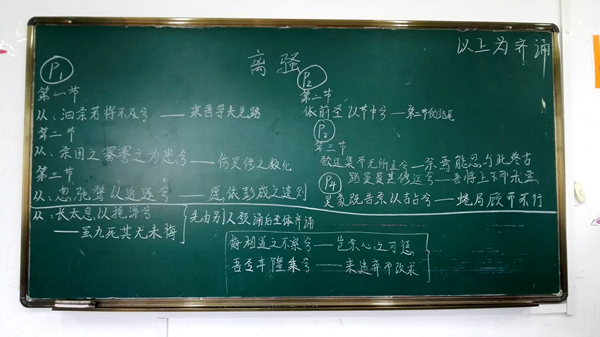 以上为齐诵
离骚
P1
第一节
从：汩余若将不及兮——来吾导夫先路
第二节
从：余固知謇謇之为患兮——伤灵修之数化
第三节
从：忽驰骛以追逐兮——愿依彭咸之遗则
从：长太息以掩涕兮
——虽九死其尤未悔
先由别人领诵后全体齐诵
P2
第二节
依前圣以节中兮——第二节的结尾
P3
第三节
欲远集而无所止兮——余焉能忍与此终古
路曼曼其修远兮——吾将上下而求索
P4
灵氛既告余以吉占兮——蜷局顾而不行
悔相道之不察兮——岂余心之可惩